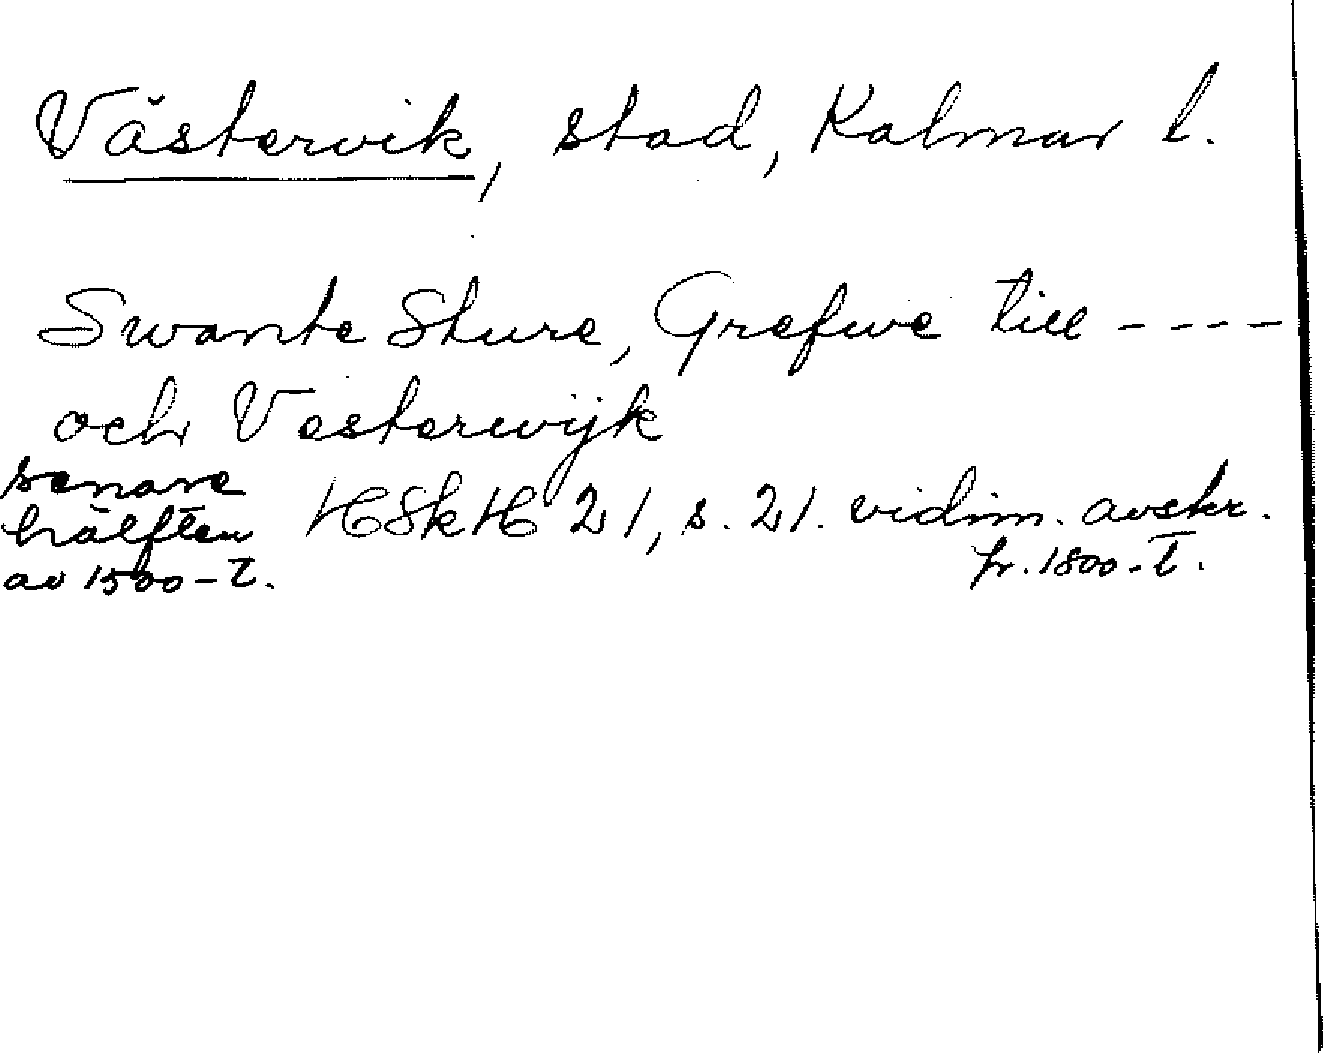 Västervik, stad, Kalmar l.
Swante Sture, Grefwe till ----
och Vesterwijk
senare
hälften HSkH 21, s. 21. vidim. avskr.
av 1500-t. fr. 1800-t.